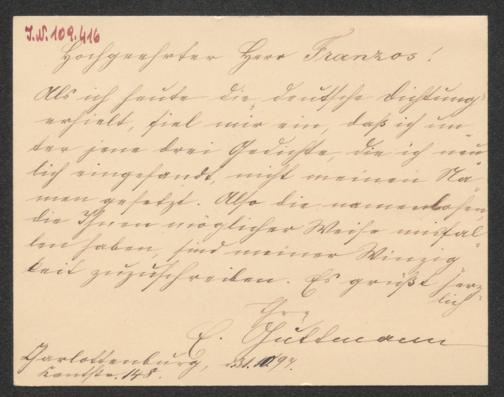 I.N. 109.416
Hochgeehrter Herr Franzos!
Als ich heute die „deutsche Dichtung"
erhielt, fiel mir ein, daß ich un-
ter jene drei Gedichte, die ich neu-
lich eingesandt, nicht meinen Na-
men gesetzt. Also die namenlosen,
die Ihnen möglicher Weise misfal-
len haben, sind meiner Winzig
keit zuzuschreiben. Es grüßt herz-
lich
Ihr
E. Guttmann
Charlottenburg, d. 31.10.94.
Kantstr. 148.